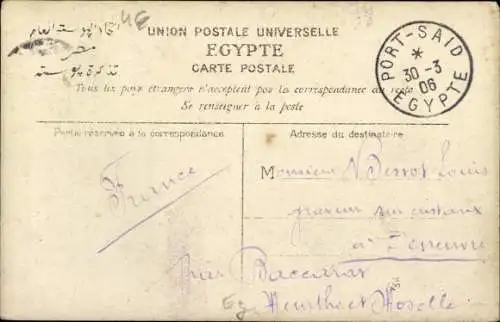 UNION POSTALE UNIVERSELLE
EGYPTE
CARTE POSTALE
Tous les pays étrangers n'acceptent pas la correspondance au recto
Se renseigner à la poste
PORT-SAID
*
30-3
06
EGYPTE
Partie réservée à la correspondance
Adresse du destinataire
France
Monsieur Louis
graveur sur cristaux
à Deneuvre
par Baccarat
Meurthe et Moselle